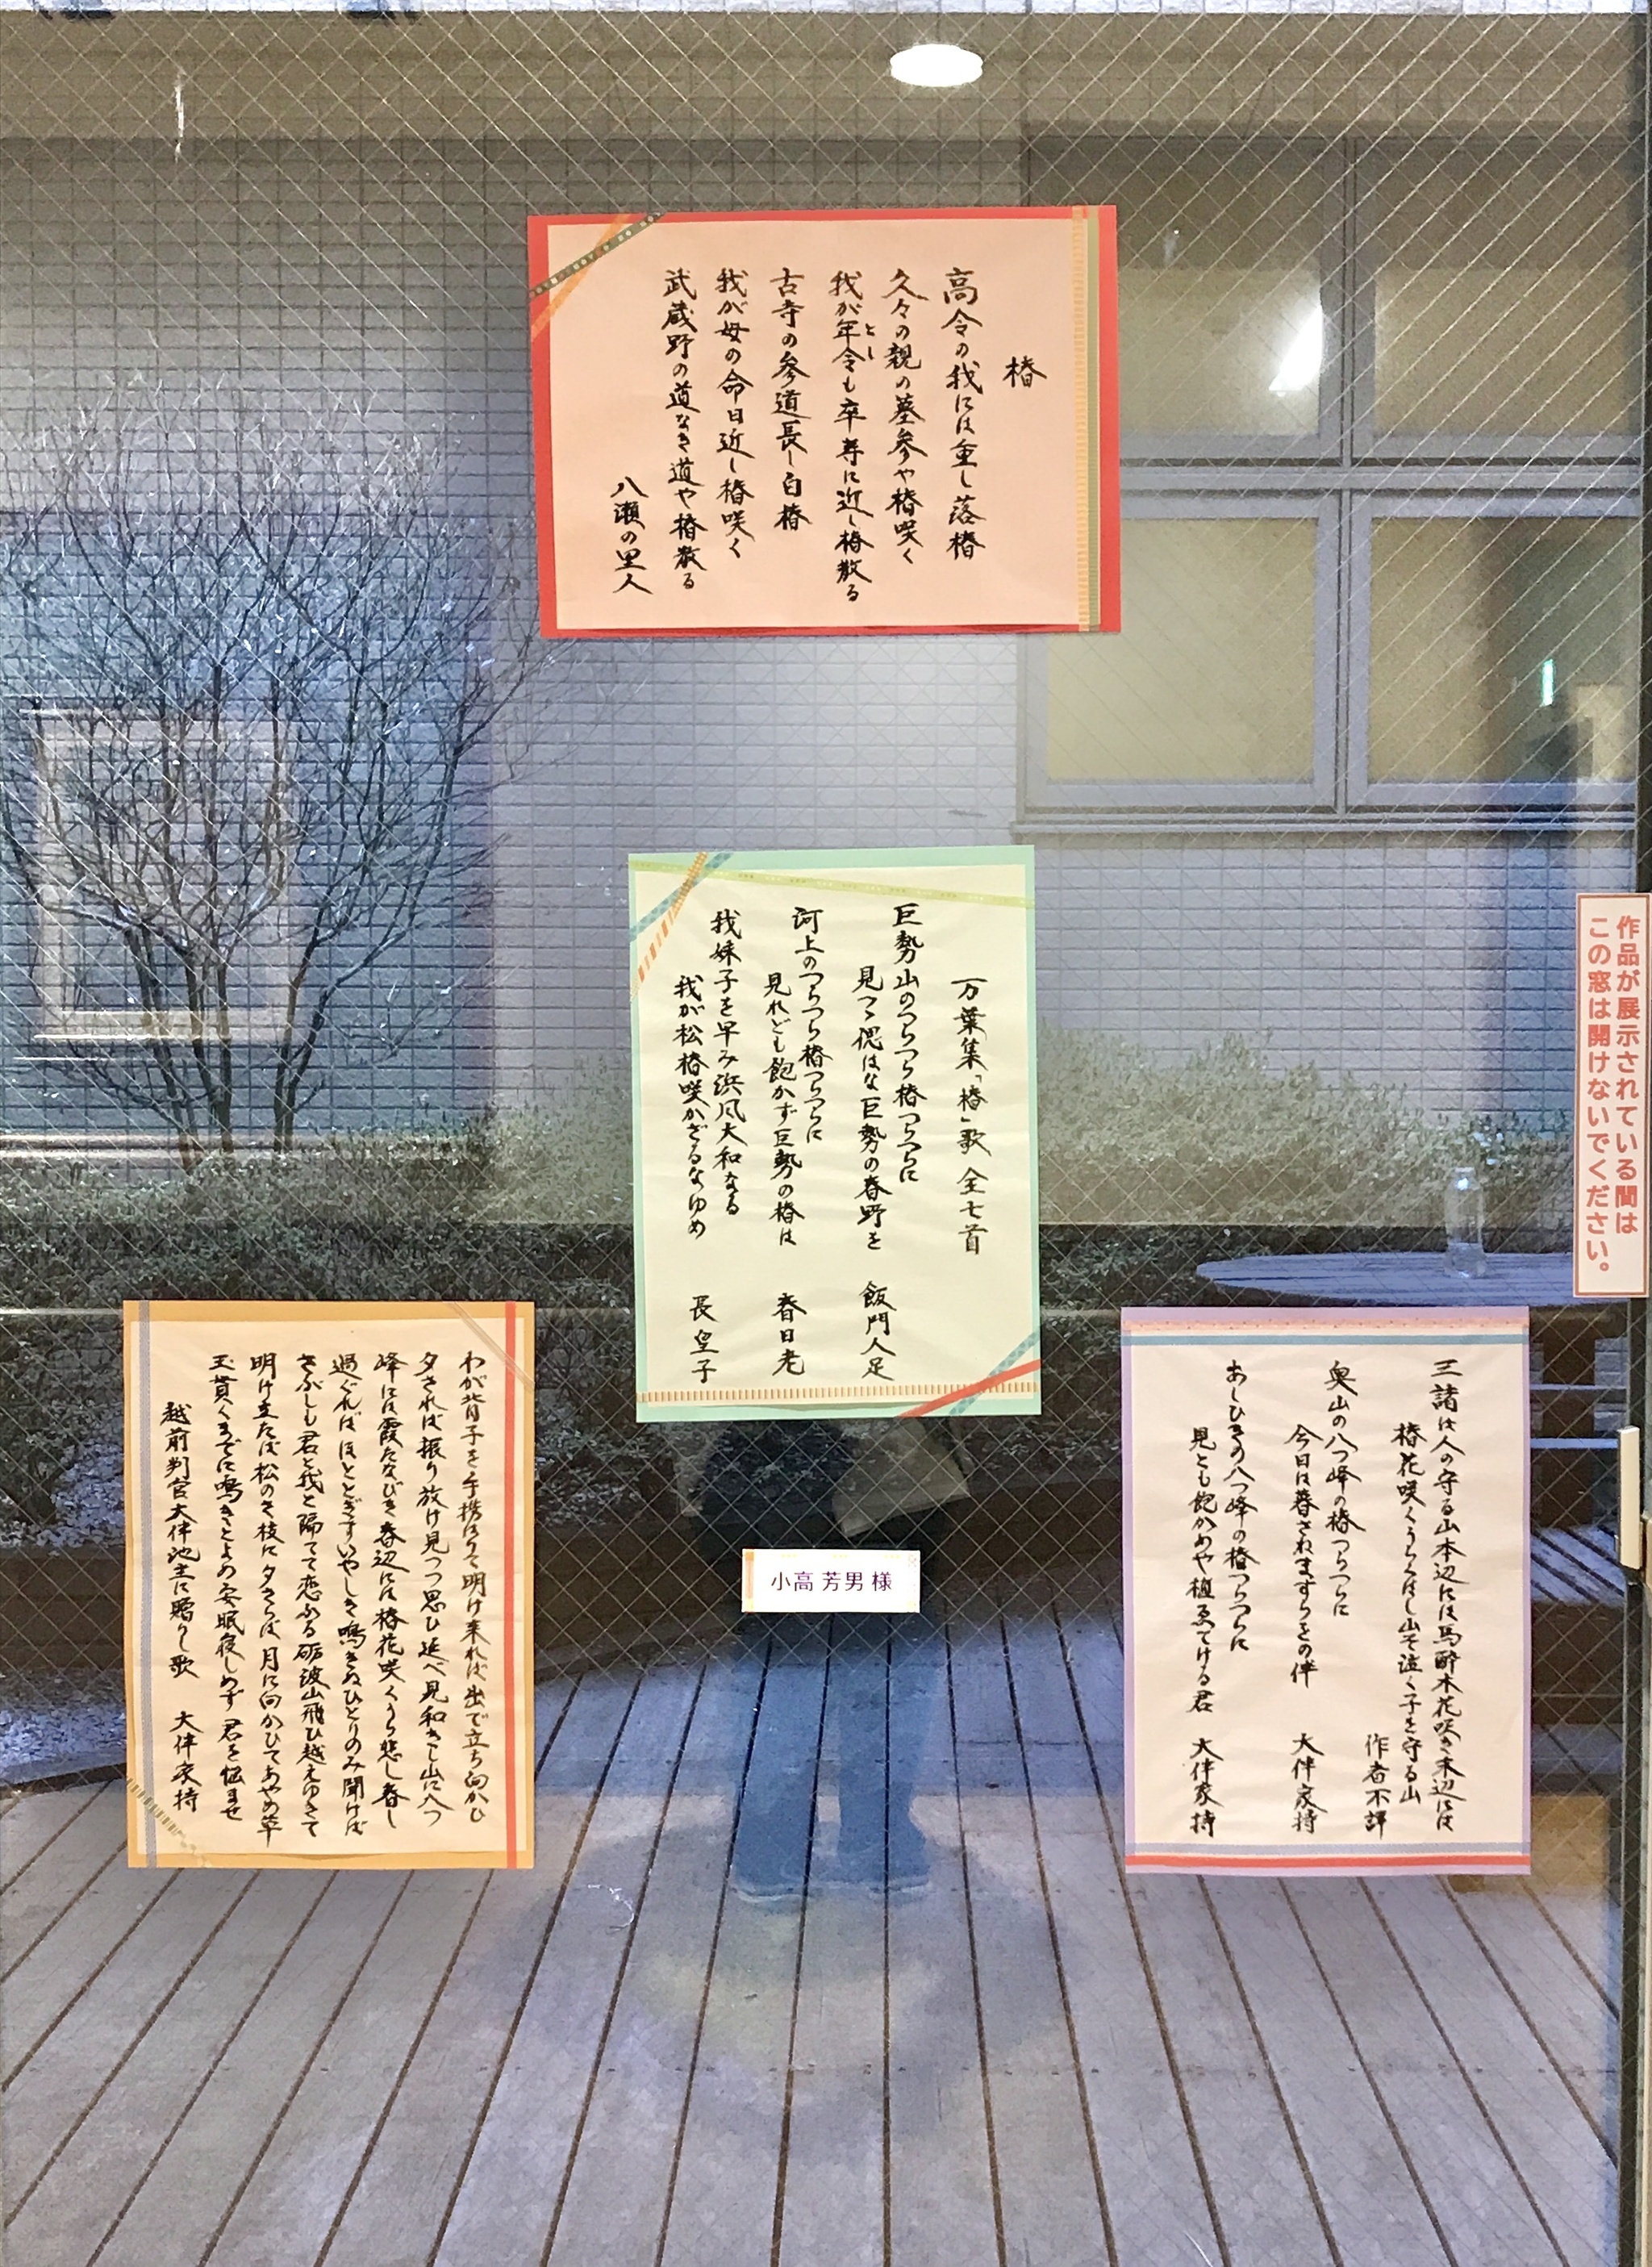 椿
高令の我には重し落椿
久々の親の墓参や椿咲く
我が年令も卒寿に近し椿散る
とし
古寺の参道長し白椿
我が母の命日近し椿咲く
武蔵野の道なき道や椿散る
八瀬の里人
万葉集「椿」歌 全七首
巨勢山のつらつら椿つらつらに
見つゝ偲はな巨勢の春野を 飯門人足
河上のつらつら椿つらつらに
見れども飽かず巨勢の椿は 春日老
我妹子を早み浜風大和なる
我が松椿咲かざるなゆめ 長皇子
作品が展示されている間は
この窓は開けないでください。
三諸は人の守る山本辺には馬酔木花咲き末辺には
椿花咲くうらはし山そ泣く子を守る山
作者不詳
奥山の八つ峰の椿つらつらに
今日は暮さねますらをの伴 大伴家持
あしひきの八つ峰の椿つらつらに
見とも飽かめや植ゑてける君 大伴家持
わが背子を手携はりて明け来れば出で立ち向かひ
夕されば振り放け見つつ思ひ延べ見和きし山に八つ
峰には霞たなびき春辺には椿花咲くうら悲し春し
過ぐればほととぎすいやしき鳴きぬひとりのみ聞けば
さぶしも君と我と隔てて恋ふる砺波山飛び越えゆきて
明け立たば松のさ枝に夕さらば月に向かひてあやめ草
玉貫くまでに鳴きとよめ安眠寝しめず君を悩ませ
越前判官大伴池主に贈りし歌 大伴家持
小高 芳男 様